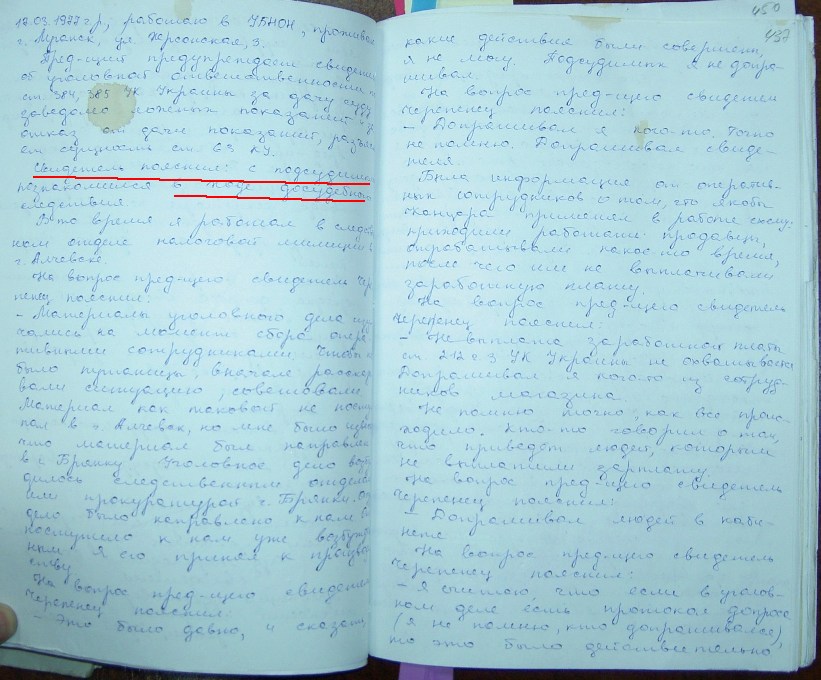 18.03.1977 г.р., работаю в УБНОН, прожива
г. Луганск, ул. Херсонская, 3.
Пред-щий предупреждает свидетеля
об уголовной ответственности по
ст. 384, 385 УК Украины за дачу суду
заведомо ложных показаний и
отказ от дачи показаний, разъяс
ст. 63 КУ.
Свидетель пояснил: с подсудим
познакомился в ходе досудебного
следствия.
В то время я работал в следст
ном отделе налоговой милиции в
г. Алчевске.
На вопрос пред-щего свидетель Чер
пенец пояснил:
- Материалы уголовного дела изу
чались на момент сбора опера
тивными сотрудниками. Чтобы н
было путаницы, вначале
вали ситуацию, советовали
Материал как таковой не посту
пал в г. Алчевск, но мне было изве
что материал был направлен
в г. Брянку. Уголовное дело возбу
дилось следственным отделом
или прокуратурой г. Брянки.
дело было направлено к нам и
поступило к нам уже возбужд
ным. Я его принял к произво
ству.
На вопрос пред-щего свидетель
Черепенец пояснил:
- Это было давно, и сказать
450
437
какие действия были совершены,
я не могу. Подсудимых я не допра-
шивал.
На вопрос пред-щего свидетель
Черепенец пояснил:
- Допрашивал я кого-то, точно
не помню. Допрашивал свиде-
теля.
Была информация от оператив-
ных сотрудников о том, что якобы
применял в работе схему:
приходили работали продавцы,
отрабатывали какое-то время,
после чего им не выплачивали
заработную плату.
На вопрос пред-щего свидетель
Черепенец пояснил:
- Не выплата заработной платы
ст. 212 ч. 3 УК Украины не охватывается
Допрашивал я кого-то из сотруд-
ников магазина.
Не помню точно, как все проис-
ходило. Кто-то говорил о том,
что приведет людей, которым
не выплатили зарплату.
На вопрос пред-щего свидетель
Черепенец пояснил:
- Допрашивал людей в каби-
нете.
На вопрос пред-щего свидетель
Черепенец пояснил:
- Я считаю, что если в уголов-
ном деле есть протокол допроса
(я не помню, кто допрашивался),
то это было действительно